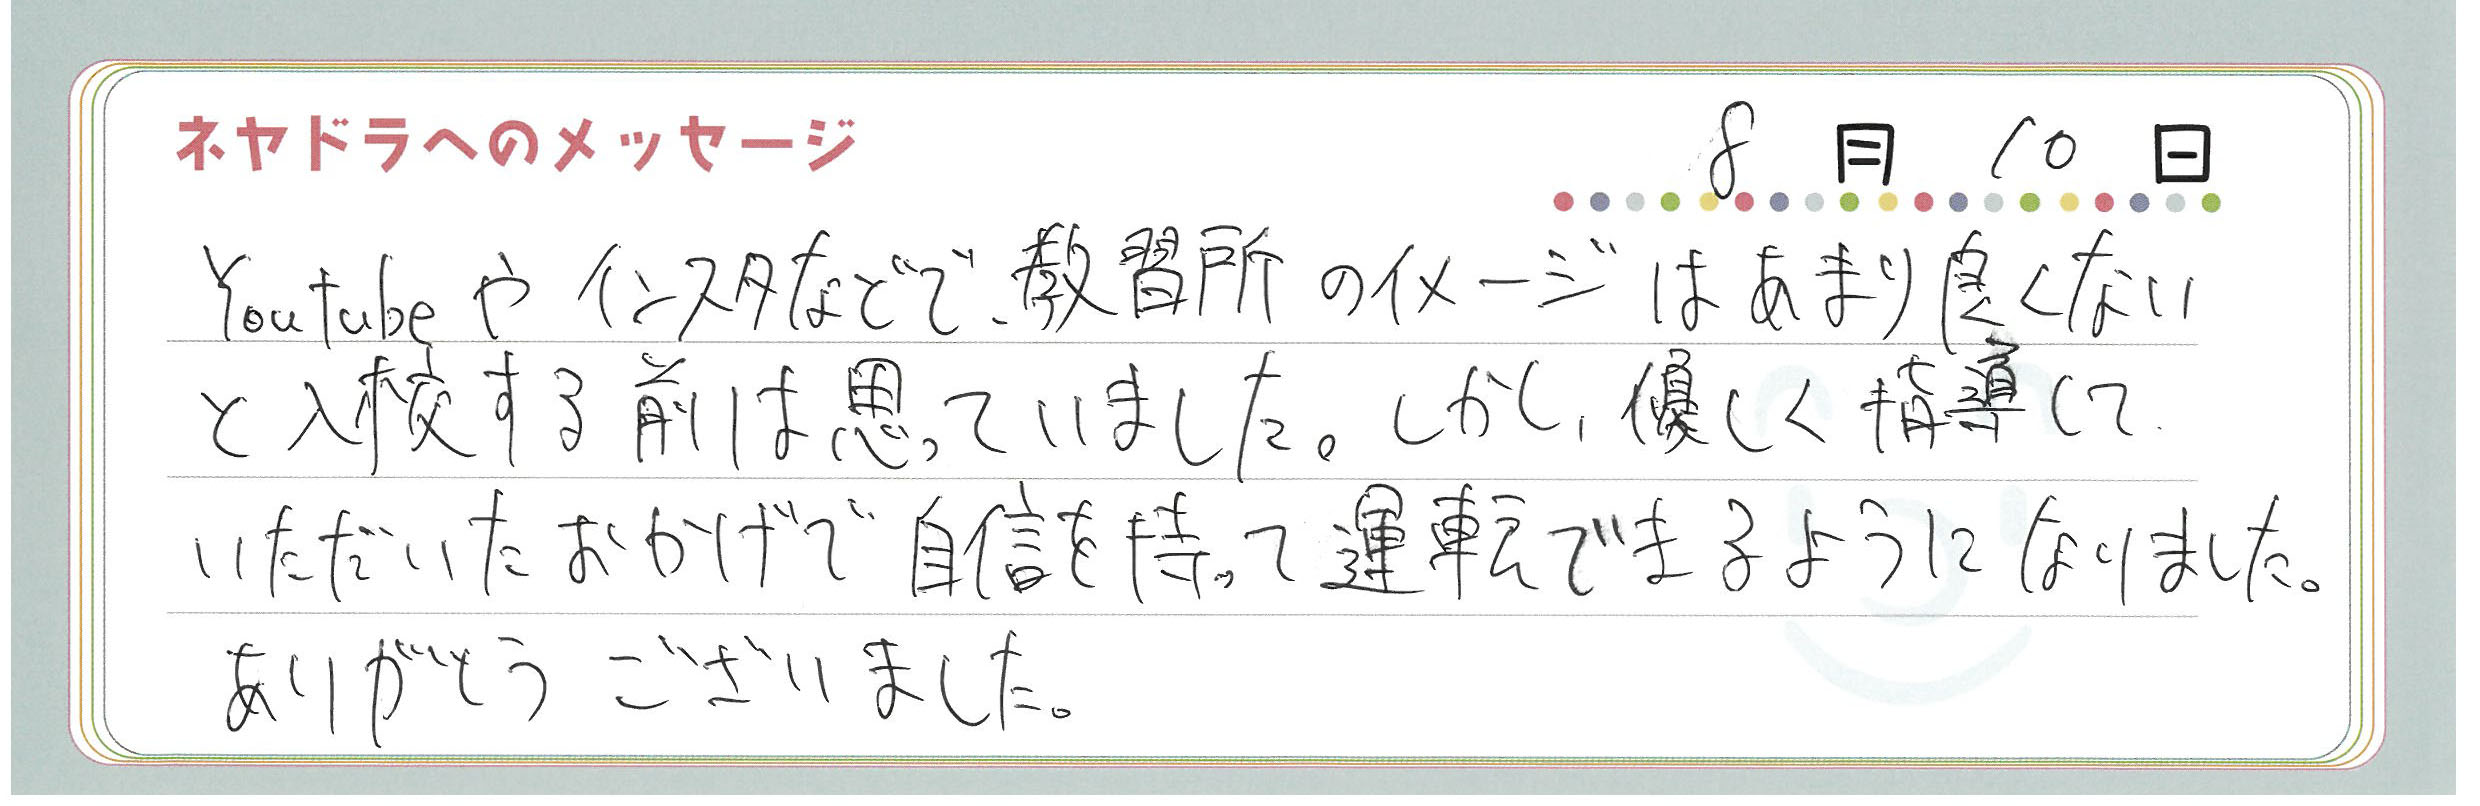 ネヤドラへのメッセージ
8月10日
Youtubeやインスタなどで、教習所のイメージはあまり良くない
と入校する前は思っていました。しかし、優しく指導して
いただいたおかげで自信を持って運転できるようになりました。
ありがとうございました。